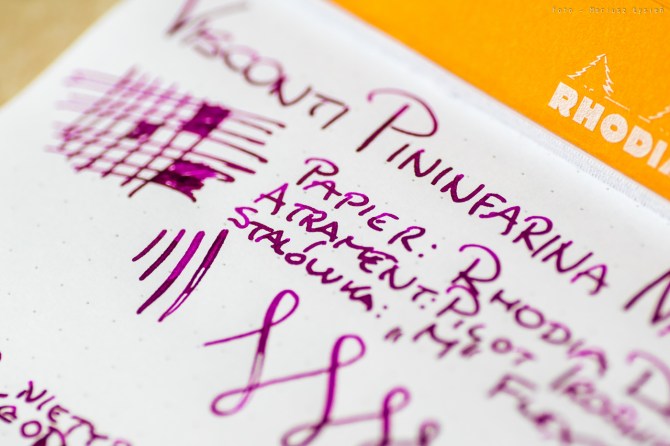 RHODIA
VISCONTI PININFARINA
PAPIER: RHODIA D
ATRAMENT: PILOT IROSHI
STALÓWKA: „M"
FLEX
NIETY